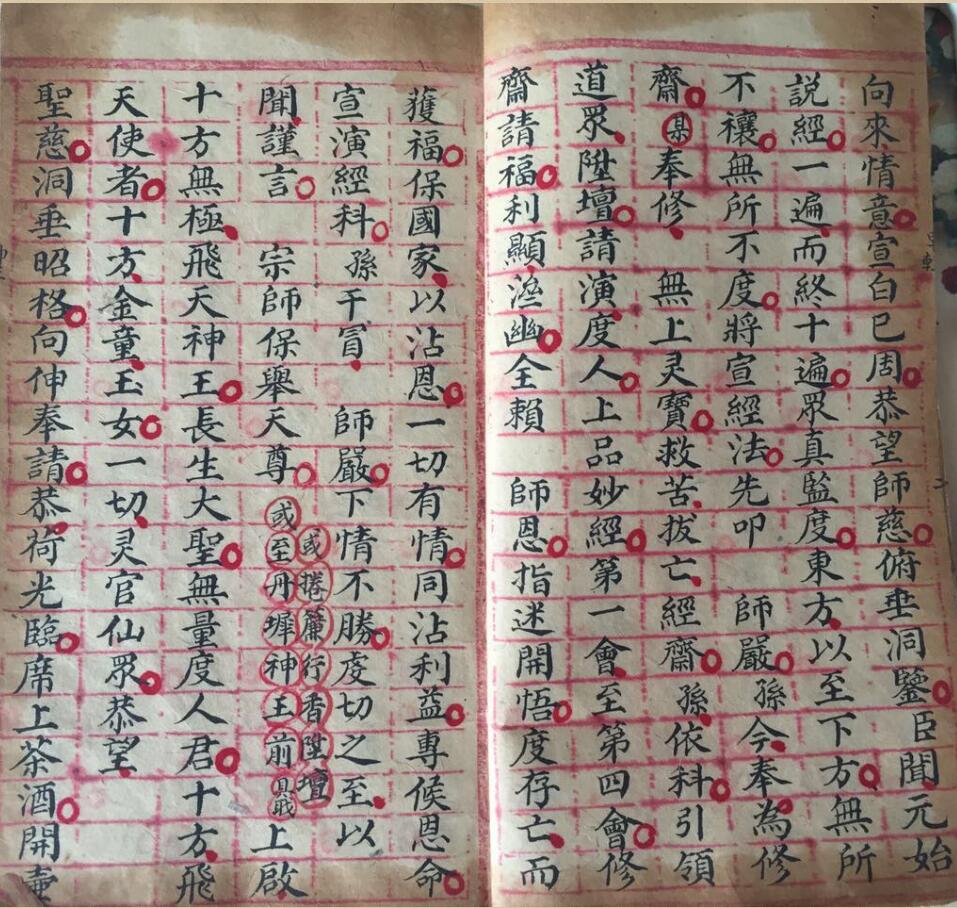 向來情意宣白已周恭望師慈俯垂洞鑒臣聞元始
説經一遍而終十遍眾真監度東方以至下方無所
不禳無所不度將宣經法先叩 師嚴孫今奉為修
齋某奉修無上灵寳救苦拔亡經齋孫依科引領
道眾陞壇請演度人上品妙經第一會至第四會修
齋請福利顯濟幽全賴 師恩指迷開悟度存亡而
獲福保國家以沾恩一切有情同沾利益專候恩命
宣演經科 孫干冐 師嚴下情不勝虔切之至以
聞謹言 宗師保舉天尊
或捲簾行香陞壇
或至丹墀神王前具戢
上啟
十方無極飛天神王長生大聖無量度人君十方飛
天使者十方金童玉女一切灵官仙眾恭望
聖慈洞垂昭格向伸奉請恭荷光臨席上茶酒開壷